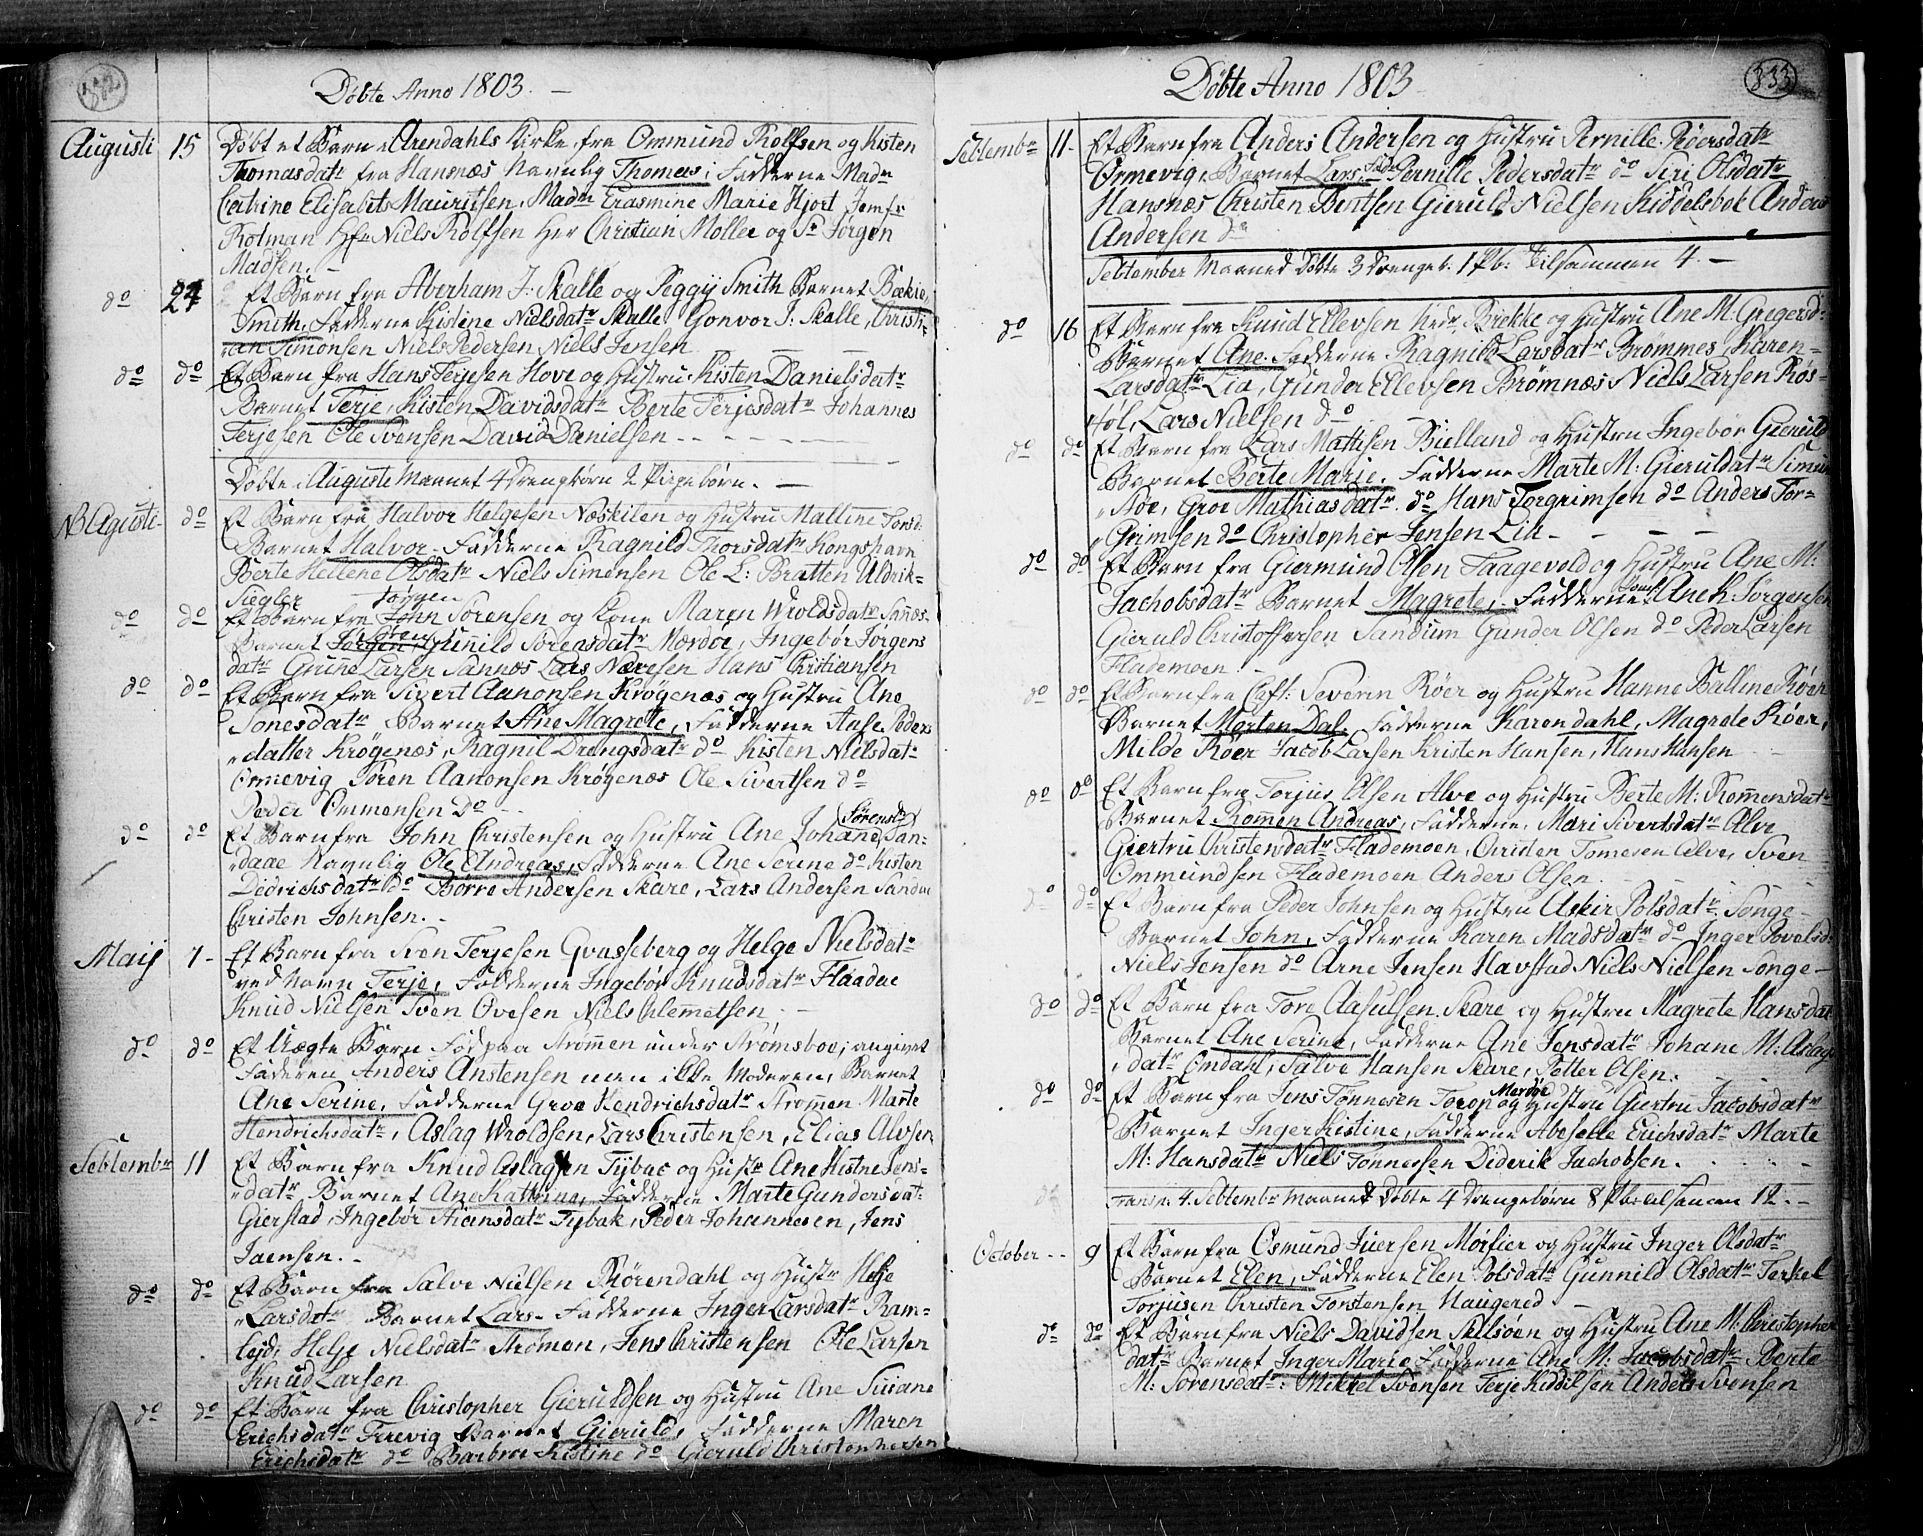 332
Döbte Anno 1803. —
Augusti 15 Döbt et Barn i Arendahls Kirke, fra Ommund Rolfsen og Kisten
Thomasdatr fra Hansnæs Navnlig Thomas; Fadderne Madm
Catrine Elisabets Mauritsen, Madm Erasmine Marie Hjort Jomfr
Rolman Hr Niels Rolfsen Her Christian Möller og Sr Jörgen
Madsen. —
do 24 Et Barn fra Aberham J: Skalle og Peggy Smith Barnet Bækie
Smith, Fadderne Kistene Nielsdatr Skalle Gonvor J: Skalle, Christi-
an Simonsen Niels Pedersen Niels Jensen
do do Et Barn fra Hans Terjesen Hove og Hustru Kisten Danielsdatr
Barnet Terje, Kisten Davidsdatr Berte Terjesdatr Johannes
Terjesen Ole Svensen David Danielsen - - - - -
Döbte i Auguste Maanet 4 Drengebörn 2 Pigebörn. —
NB Agusti do Et Barn fra Halvor Helgesen Næskilen og Hustru Malline Torsd:
Barnet Halvor. Fadderne Ragnild Thorsdatr Kongshavn
Berte Hellene Olsdatr Niels Simonsen Ole L: Bratten Uldrik
Siegler Jörgen
do do Et Barn fra John Sörensen og Kone Maren Wroldsdatr Sannæs
Sören
Barnet Jörgen, Gunild Sörensdatr Merdöe, Ingebör Jörgens
datr Gunne Larsen Sannæs Lars Næresen Hans Christiansen
do do Et Barn fra Sivert Aanonsen Krögenæs og Hustru Ane
Tonesdatr Barnet Ane Magrete, Fadderne Aase Peders
datter Krögenæs, Ragnil Drengsdatr do Kisten Nielsdatr
Ormevig Sören Aanonsen Krögenæs Ole Sivertsen do
Peder Ommensen Do
Sörensd
do do Et Barn fra John Christensen og Hustru Ane Johane, San-
daae Navnlig Ole Andreas, Fadderne Ane Serine do Kisten
Didrichsdatr do Börre Andersen Skare, Lars Andersen Sandaae
Christen Johnsen. -
Maij 7 - Et Barn fra Sven Terjesen Gvasseberg og Helge Nielsdatr
ved Navn Terje, Fadderne Ingebör Knudsdatr Flaadne
Knud Nielsen Sven Ovesen Niels Clemmetsen. —
do do Et Uægte Barn Fød paa Strömmen under Strömsboe; angivet
Faderen Anders Anstensen men ikke Moderen, Barnet
Ane Serine, Fadderne Groe Hendrichsdatr Strömmen Marte
Hendrichsdatr, Aslag Wroldsen, Lars Christensen, Elias Alvsen
Sebtembr 11 Et Barn fra Knud Aslagsen Tybac og Hustr Ane Kistne Jens-
datr Barnet Ane Kathrine, Fadderne Marte Gundersdatr
Gierstad, Ingebör Hansdatr Tybak, Peder Johannesen, Jens
Jaensen. -
do do Et Barn fra Salve Nielsen Börendahl og Hustr Helje
Larsdatr Barnet Lars. Fadderne Inger Larsdatr Ram-
lejd, Helje Nielsdatr Strömen, Jens Christensen Ole Larsen
Knud Larsen
do do Et Barn fra Christopher Gieruldsen og Hustru Ane Susane
Erichsdatr Færevig Barnet Gieruld, Fadderne Maren
Erichsdatr do Barbroe Kistine do Gieruld Christophersen
333
Döbte Anno 1803
Sebtembr 11 - Et Barn fra Anders Andersen og Hustru Pernille Pedersdatr
Ormevig, Barnet Lars, Fadd Pernille Pedersdatr do Siri Olsdatr
Hansnæs Christen Bentsen Gieruld Nielsen Kiddelsbok Anders
Andersen do
September Maaned Döbte 3 Drenge: 1 Pb: tilsammen 4. —
do 16 Et Barn fra Knud Ellevsen Brekke og Hustru Ane M: Gregersd:
Barnet Ane. Fadderne Ragnild Larsdatr Brömmes, Karen
Larsdatr Lia, Gunder Ellevsen Brömnæs Niels Larsen Ros-
hol, Lars Nielsen do
do do Et Barn fra Lars Mathisen Bielland og Hustru Ingebör Gieruld
Barnet Berte Marie. Fadderne Marte M: Gieruldatr Simun
Aöe, Groe Mathiasdatr. do Hans Torgrimsen do Anders Tor-
Grimsen do Christopher Jensen Lia - - - -
do do Et Barn fra Giermund Olsen Faagevold og Hustru Ane M:
Jachobsdatr Barnet Magrete, Fadderne Ane K. Jörgensen
Gieruld Christoffersen Sandum Gunder Olsen do Peder Larsen
Flademoen -
do do Et Barn fra Capt: Severin Röer og Hustru Hanne Balline Röer
Barnet Morten Dal, Fadderne Karen Dahl, Magrete Röer,
Milde Röer Jacob Larsen Kristen Hansen, Hans Hansen
do do Et Barn fra Torjus Olsen Alve og Hustru Berte M: Romensdatr
Barnet Romen Andreas, Fadderne, Mari Sivertsdatr Alve
Giertru Christensdatr Flademoen, Christen Tomesen Alve, Sven
Ommundsen Flademoen Anders Olsen. -
do do Et Barn fra Peder Johnsen og Hustru Asker Polsdatr. Songe -
Barnet John, Fadderne Karen Madsdatr do Inger Povelsd:
Niels Jensen do Arne Jensen Havstad Niels Nielsen Songe -
do do Et Barn fra Tore Aasulsen Skare og Hustru Magrete Hansdatr
Barnet Ane Serine, Fadderne Ane Jensdatr Johane M: Aslags
datr Omdahl, Salve Hansen Skare, Petter Olsen.
Merdöe
do do Et Barn fra Jens Tönnesen Torop og Hustru Giertru Jacobsdatr
Barnet Inger Kistine, Fadderne Abeselle Erichsdatr Marte
M: Hansdatr Niels Tönnesen Diderik Jachobsen.
do Transp: 4. Sebtembr Maaned Döbte 4 Drengebörn 8 Pb: tilsamen 12. -
October - - 9 Et Barn fra Osmund Juersen Mörfier og Hustru Inger Olsdatr
Barnet Elen, Fadderne Elen Polsdatr Gunnild Olsdatr Terkel
Torjusen Christen Torstensen Haugered. -
do do Et Barn fra Niels Davidsen Skilsöen og Hustru Ane M: Christopher
datr Barnet Inger Marie Fadderne Ane M: Jacobsdatr Berte
M: Sörensdatr: Mikkel Svensen Terje Kiddilsen Anders Svensen